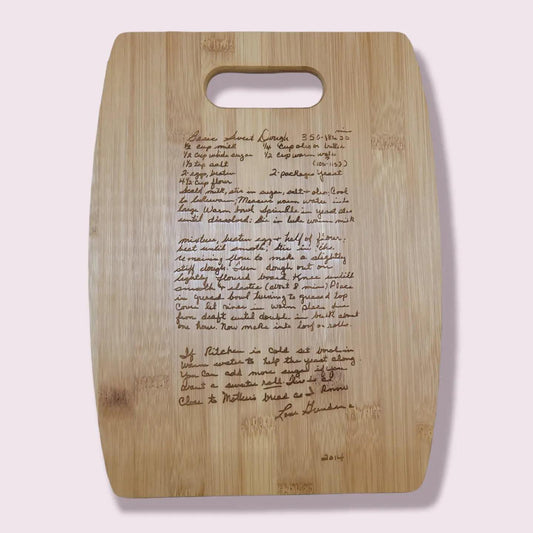 Basic Sweet Dough 350 - 18 to 20 min
½ cup milk ¼ cup oleo or butter
½ cup white sugar ½ cup warm water
1½ tsp salt (105-115°)
2 eggs, beaten 2 packages yeast
4½ cup flour
Scald milk, stir in sugar, salt & oleo. Cool
to lukewarm; Measure warm water into
large warm bowl. Sprinkle in yeast stir
until dissolved; Stir in luke warm milk
mixture, beaten egg & half of flour;
beat until smooth; Stir in the
remaining flour to make a slightly
stiff dough. Turn dough out on
lightly floured board. Knee untill
smooth & elastic (about 8 min) Place
in greased bowl turning to greased top
Cover let rise in warm place free
from draft until double in bulk about
one hour. Now make into loaf or rolls.
If Kitchen is cold set bowl in
warm water to help the yeast along.
You can add more sugar if you
want a sweeter roll. This is as
Close to Mother's bread as I know
Love Grandma
2014